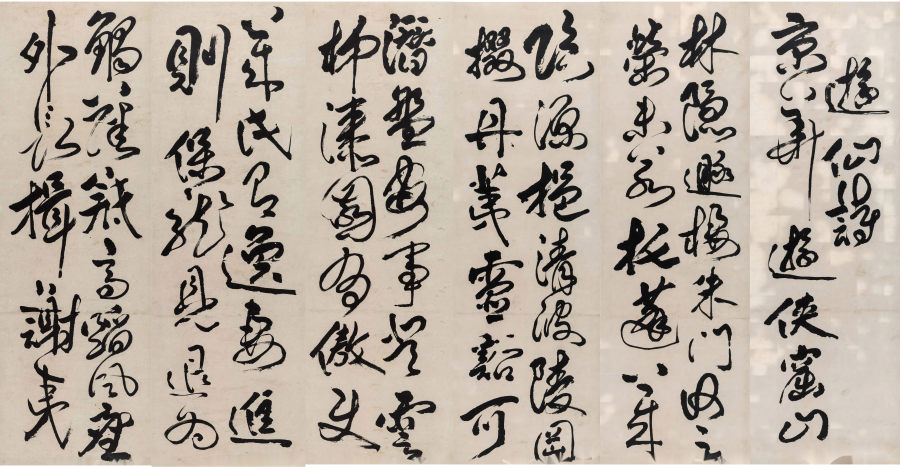 遊仙詩
京華遊俠窟山
林隱遯棲朱門何足
榮未若托蓬萊
臨源挹清波陵岡
掇丹荑靈谿可
潛盤安事登雲
梯漆園有傲吏
萊氏有逸妻進
則保龍見退為
觸藩羝高蹈風塵
外長揖謝夷